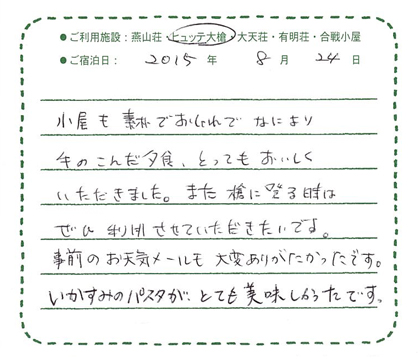 ●ご利用施設：燕山荘・ヒュッテ大槍・大天荘・有明荘・合戦小屋
●ご宿泊日： 2015 年 8 月 24 日
小屋も素朴でおしゃれで なにより
手のこんだ夕食、とっても おいしく
いただきました。また 槍に登る時は
ぜひ 利用させていただきたいです。
事前のお天気メールも 大変ありがたかったです。
いかすみのパスタが、とても美味しかったです。